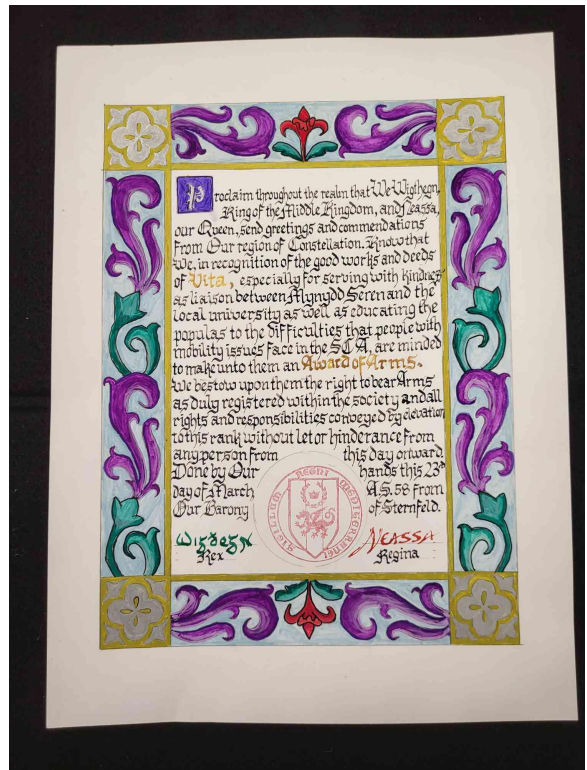 Proclaim throughout the realm that We Wigthegn,
King of the Middle Kingdom, and Neassa,
our Queen, send greetings and commendations
from Our region of Constellation. Know that
We, in recognition of the good works and deeds
of Vita, especially for serving with kindness
as liaison between Mynydd Seren and the
local university as well as educating the
populas to the difficulties that people with
mobility issues face in the SCA, are minded
to make unto them an Award of Arms.
We bestow upon them the right to bear Arms
as duly registered within the society and all
rights and responsibilities conveyed by elevation
to this rank without let or hinderance from
any person from this day onward.
Done by Our hands this 23rd
day of March A.S. 58 from
Our Barony of Sternfeld.
SIGILLUM REGNI MEDITERRANEI
Rex
NEASSA
Regina